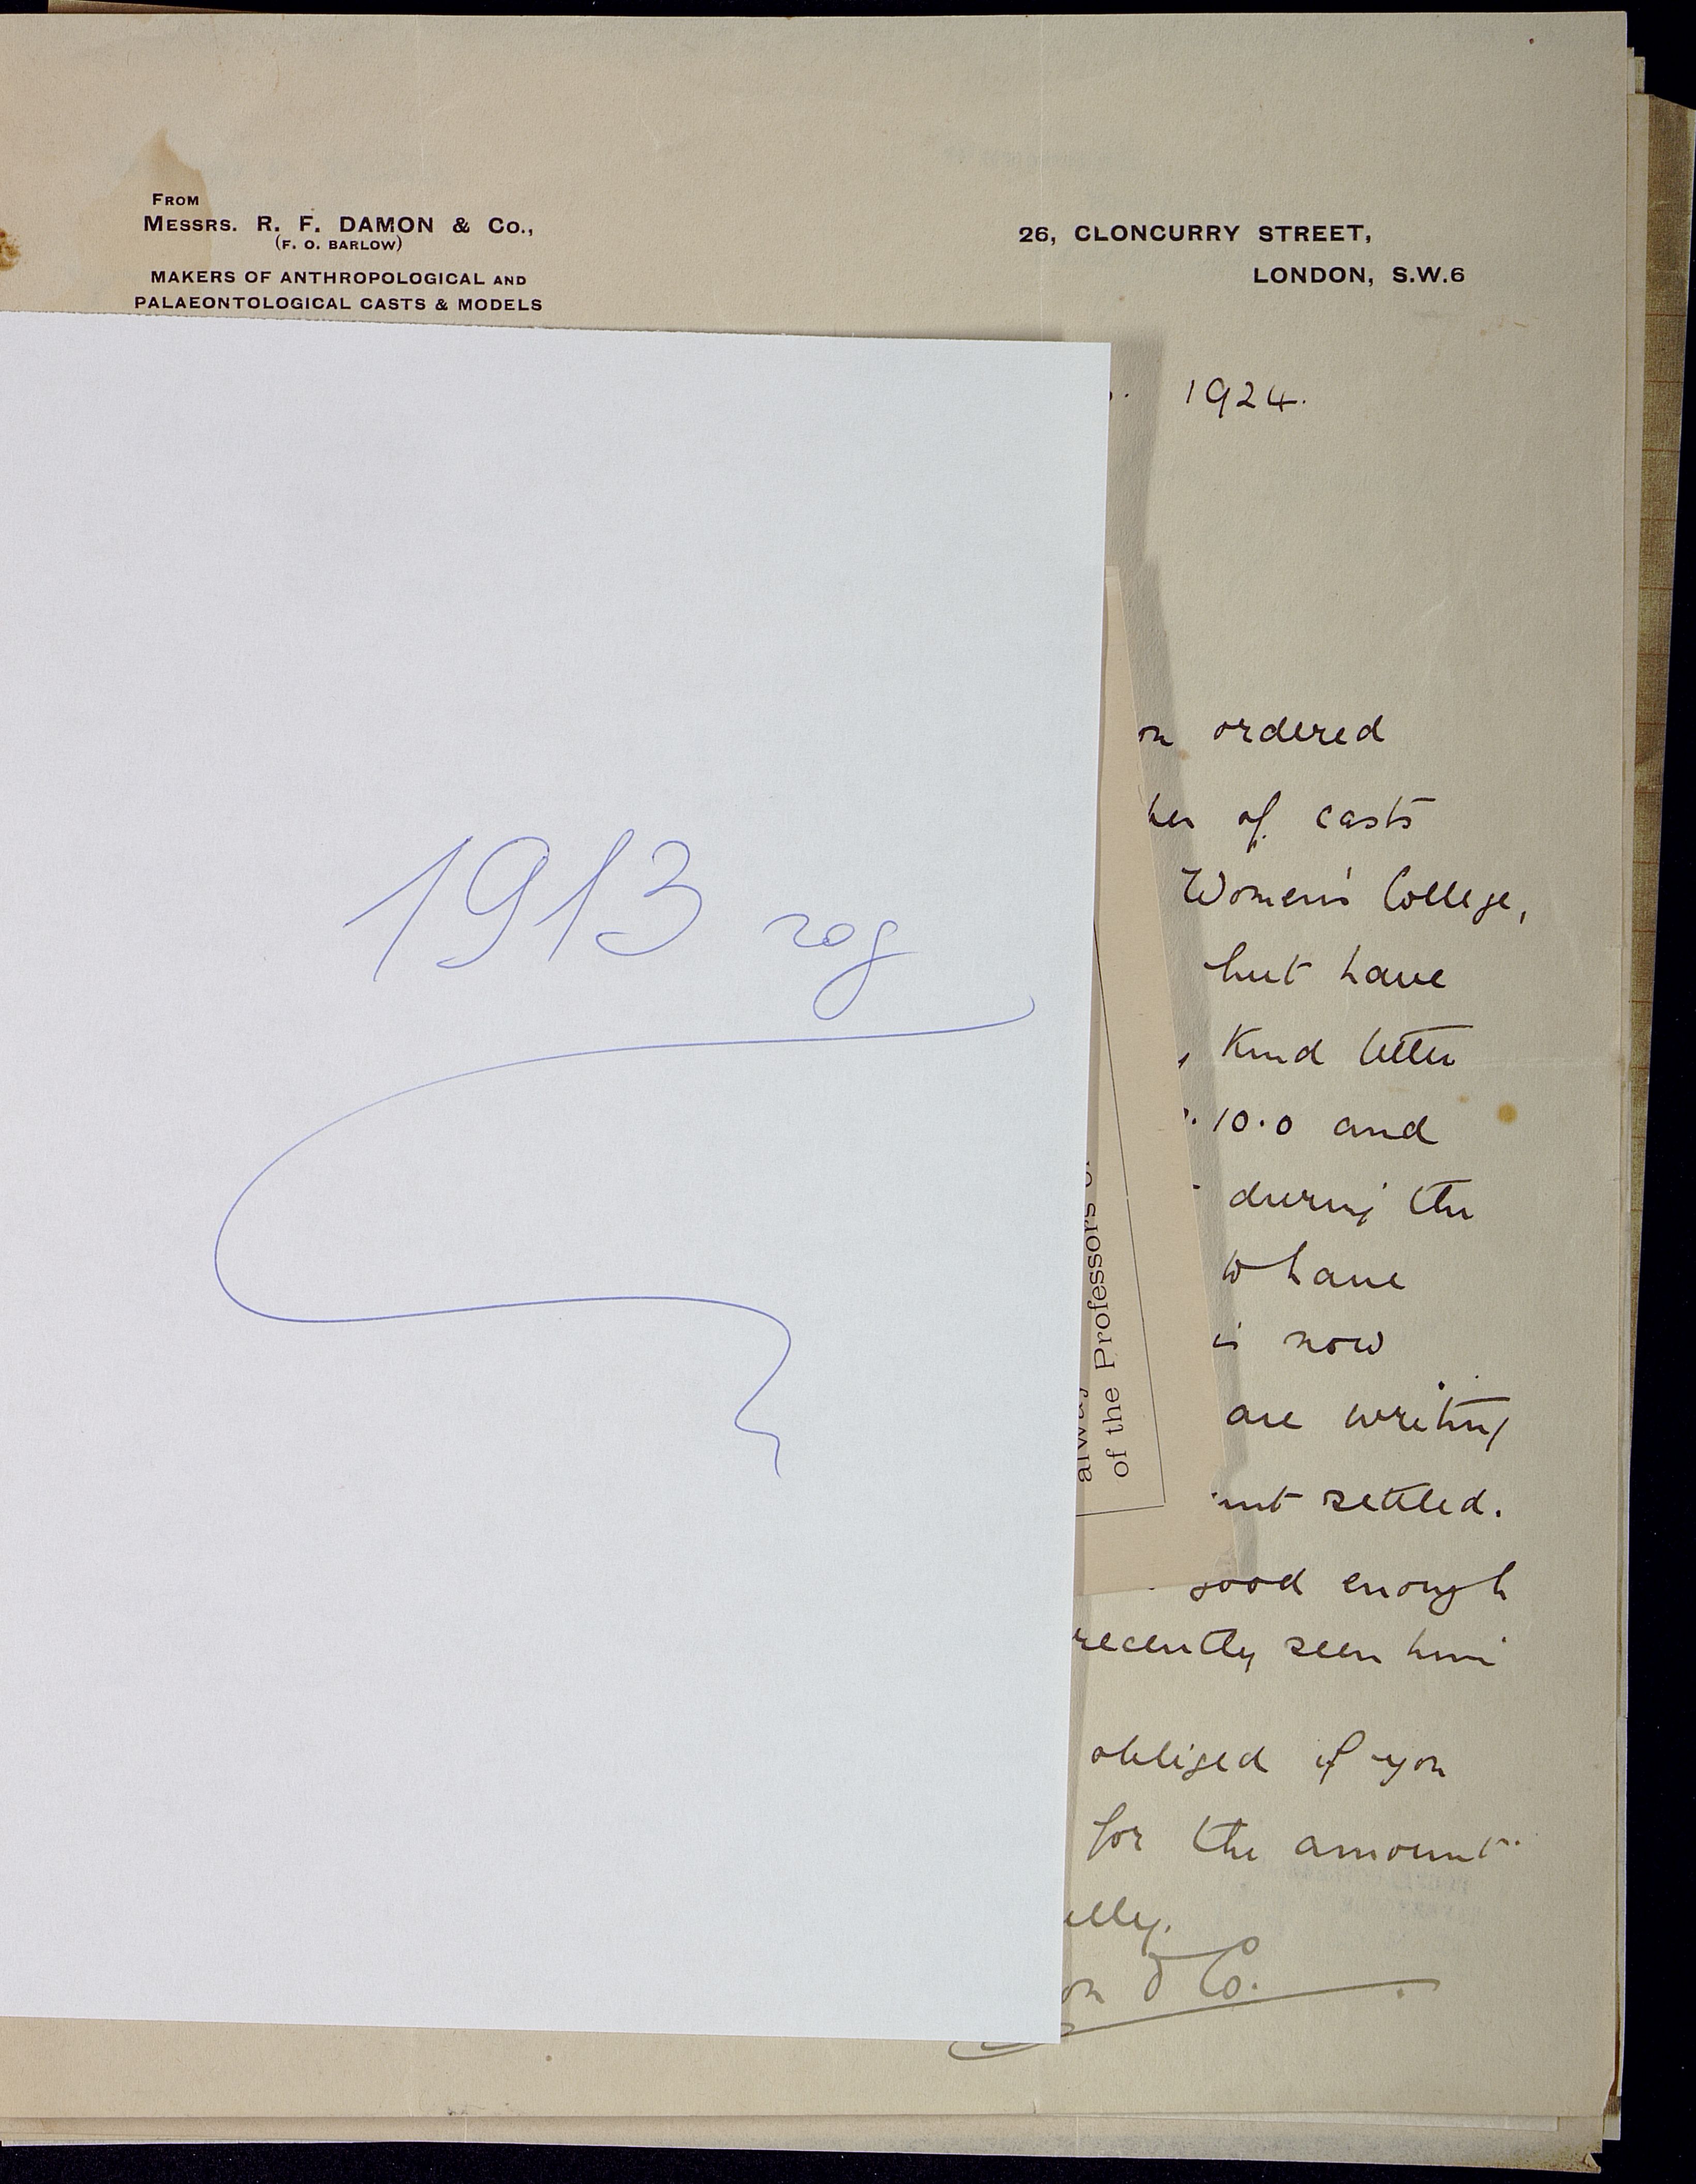 FROM
MESSRS. R. F. DAMON & Co.,
(F. O. BARLOW)
MAKERS OF ANTHROPOLOGICAL AND
PALAEONTOLOGICAL CASTS & MODELS
26, CLONCURRY STREET,
LONDON, S.W.6
1924.
ordered
of casts
Women's College,
but have
kind letter
10.0 and
during the
have
is now
are writing
settled.
good enough
recently seen him
obliged if you
for the amount
& Co.
1913 год
of the Professors